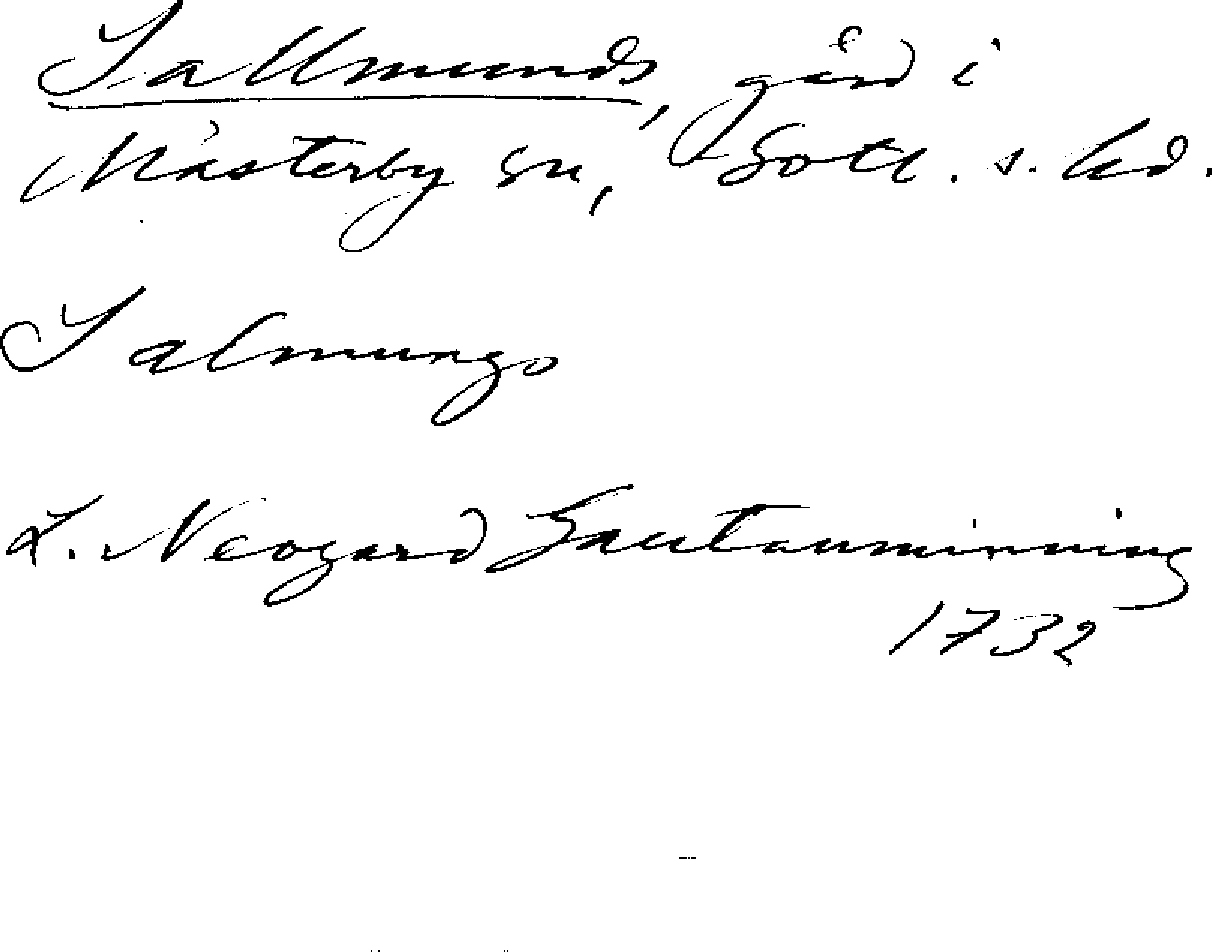 Tallmunds, gård i
Mästerby sn, Gotl. s. hd.
Salmungo
L. Neogard Gautauminning
1732